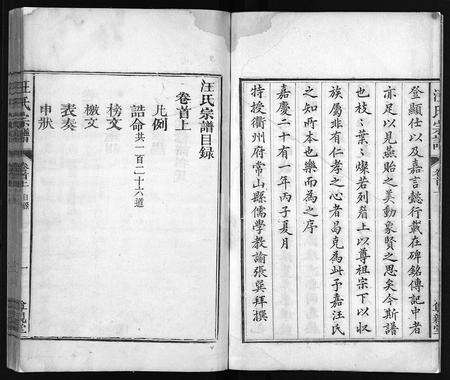 登顯仕以及嘉言懿行載在碑銘傳記中者
亦足以見燕貽之美動象賢之思矣今斯譜
也枝〻葉〻燦若列眉上以尊祖宗下以收
族屬非有仁孝之心者曷克為此予嘉汪氏
之知所本也樂而為之序
嘉慶二十有一年丙子夏月
特授衢州府常山縣儒學教諭張巽拜撰
汪氏宗譜目録
卷首上
凡例
誥命共一百二十六道
榜文
檄文
表奏
申狀
汪氏宗譜
卷首上 目録
一